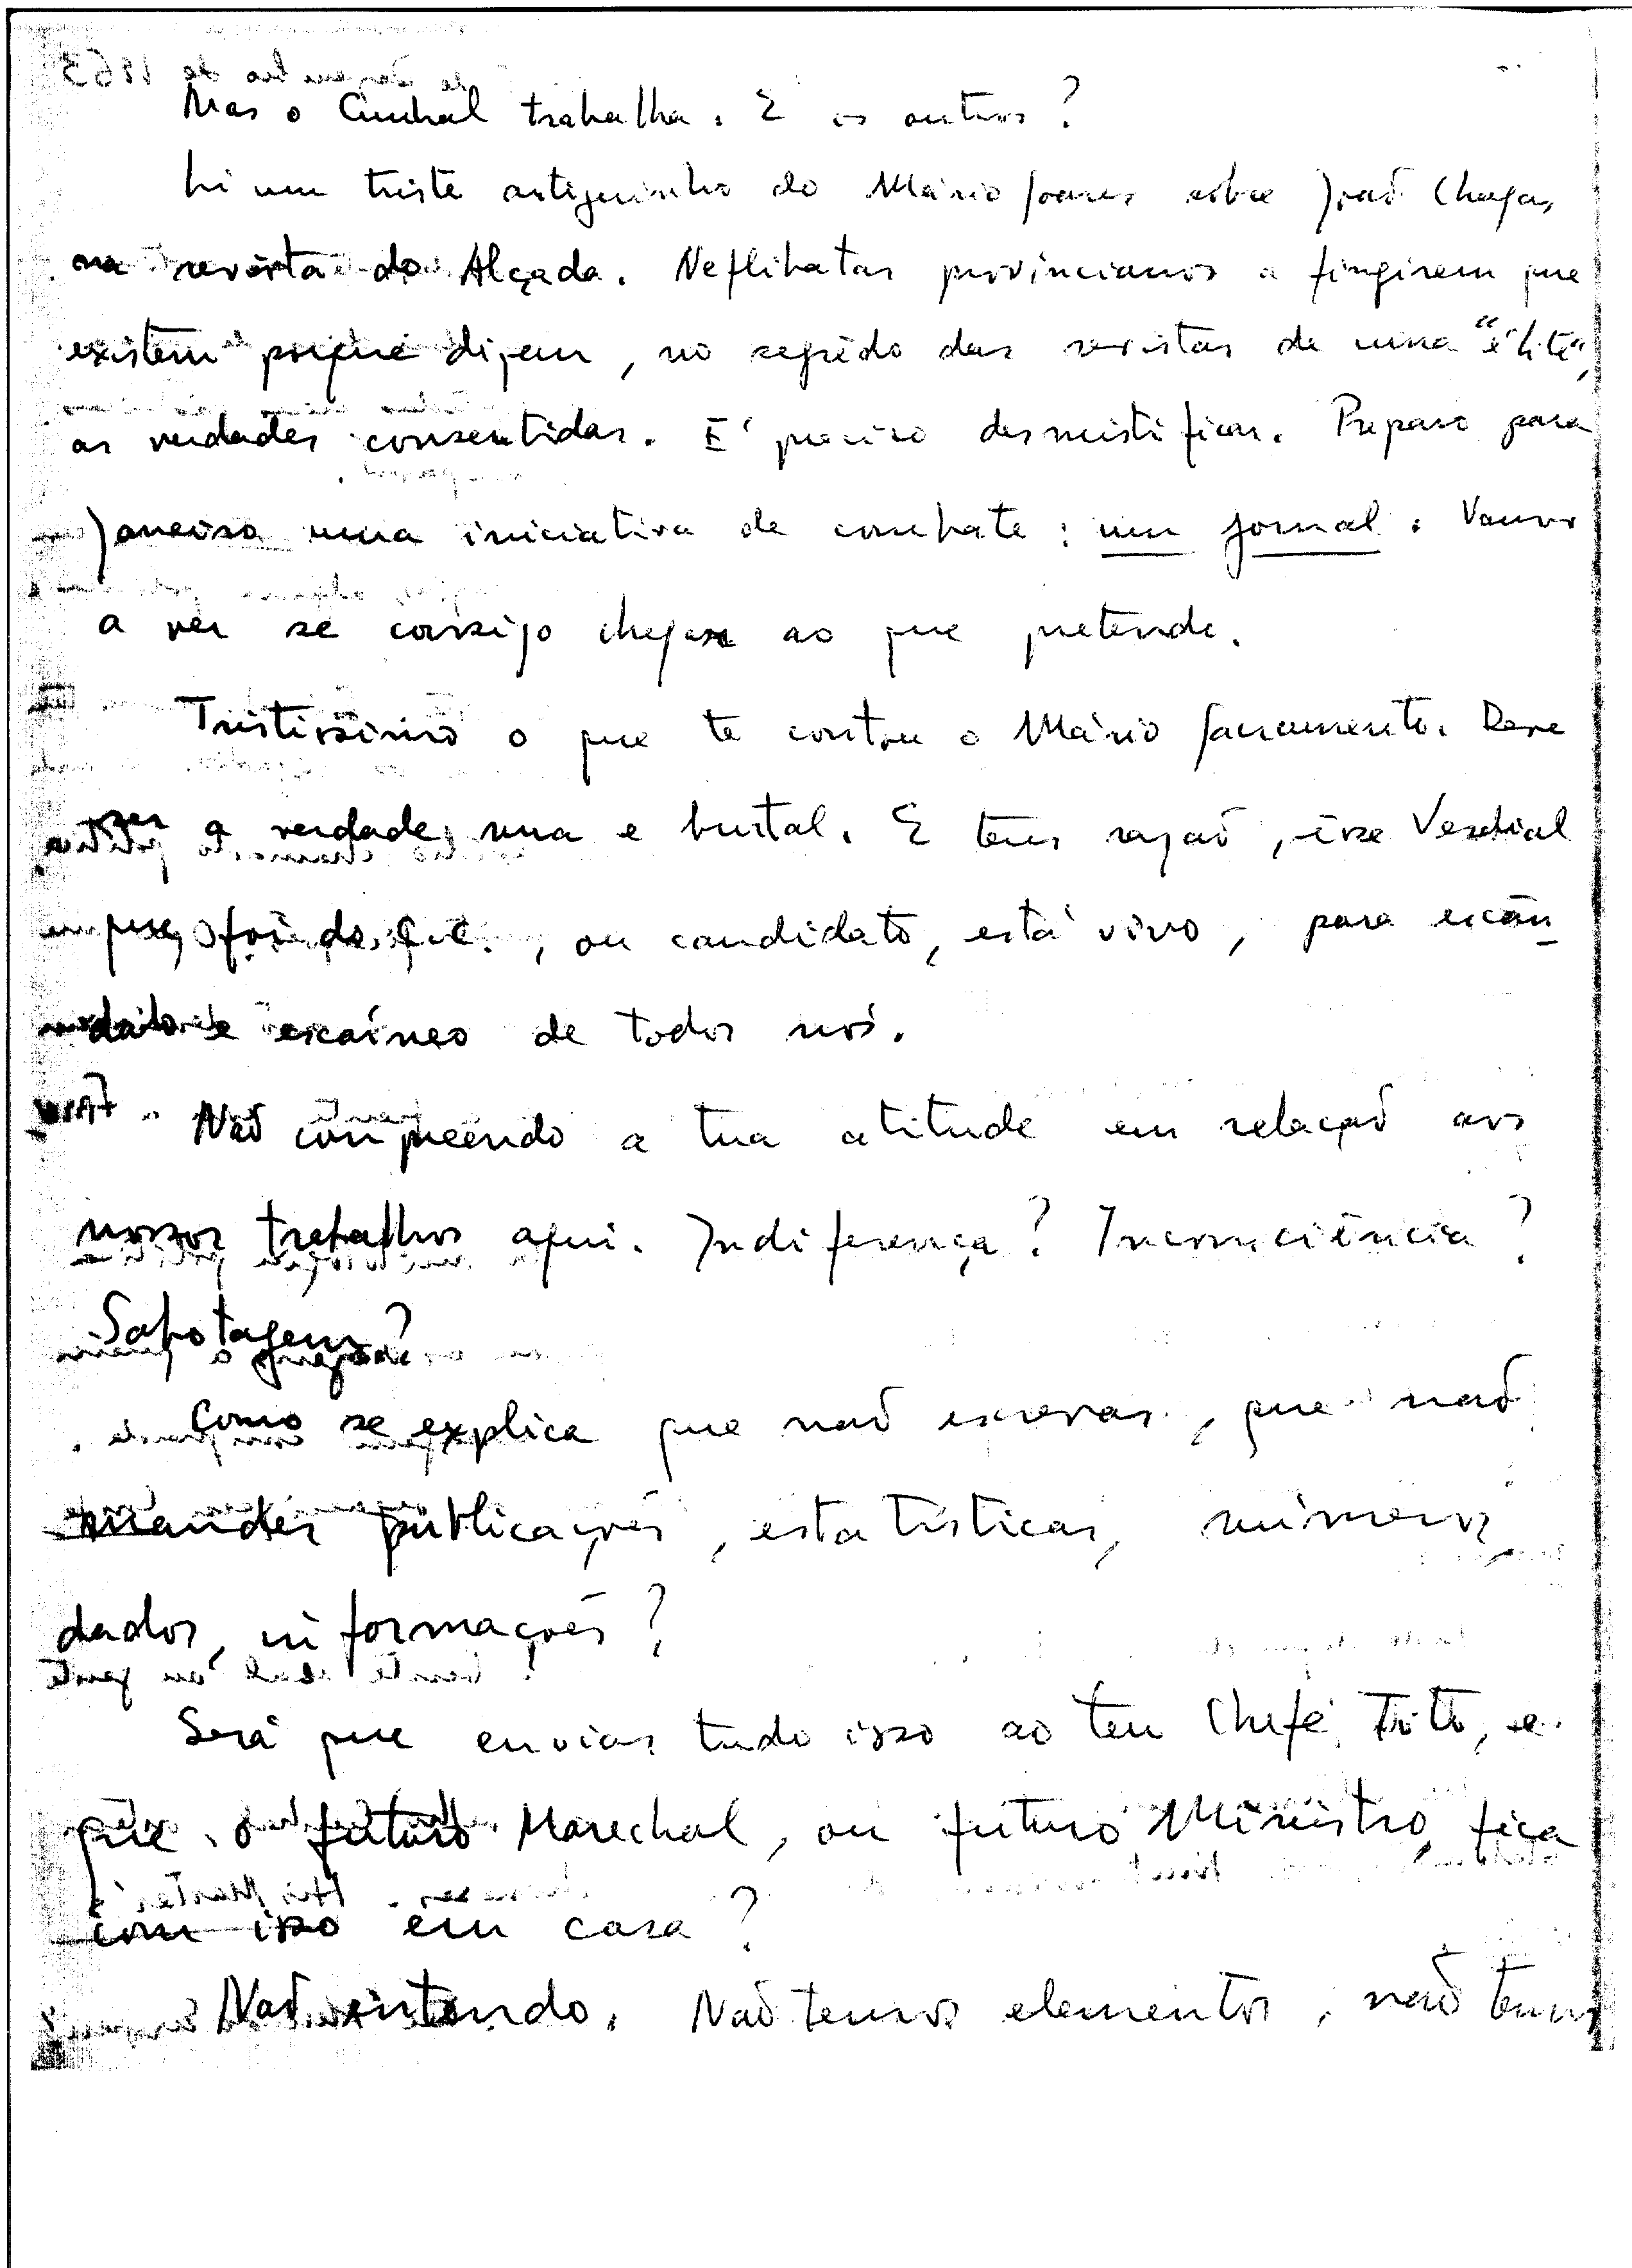 Mas o Cunhal trabalha. E os outros?
Li um triste artiguinho do Mário Soares sobre João Chagas,
na revista do Alçada. Nefelibatas provincianos a fingirem que
existem porque dizem, no segrêdo das revistas de uma "élite",
as verdades consentidas. É preciso desmistificar. Preparo para
Janeiro uma iniciativa de combate: um jornal. Vamos
a ver se consigo chegar ao que pretendo.
Tristíssimo o que te contou o Mário Sacramento. Deve
ser a verdade, nua e brutal. E tens razão, êsse Verdial
que foi do C.C., ou candidato, está vivo, para escân-
dalo e escárneo de todos nós.
Não compreendo a tua atitude em relação aos
nossos trabalhos aqui. Indiferença? Inconsciência?
Sabotagem?
Como se explica que não escrevas, que não
mandes publicações, estatísticas, números,
dados, informações?
Será que envias tudo isso ao teu Chefe Tito, e
que o futuro Marechal, ou futuro Ministro, fica
com isso em casa?
Não entendo. Não temos elementos, não temos